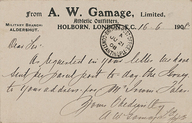 From A. W. Gamage, Limited.
Athletic Outfitters,
MILITARY BRANCH
ALDERSHOT.
HOLBORN, LONDON, E.C. 16.6.190
Dear Sir
As requested in your letter we have
sent per parcel post to day the
to your address for Mr
Yours Obediently
A. W. Gamage Ltd